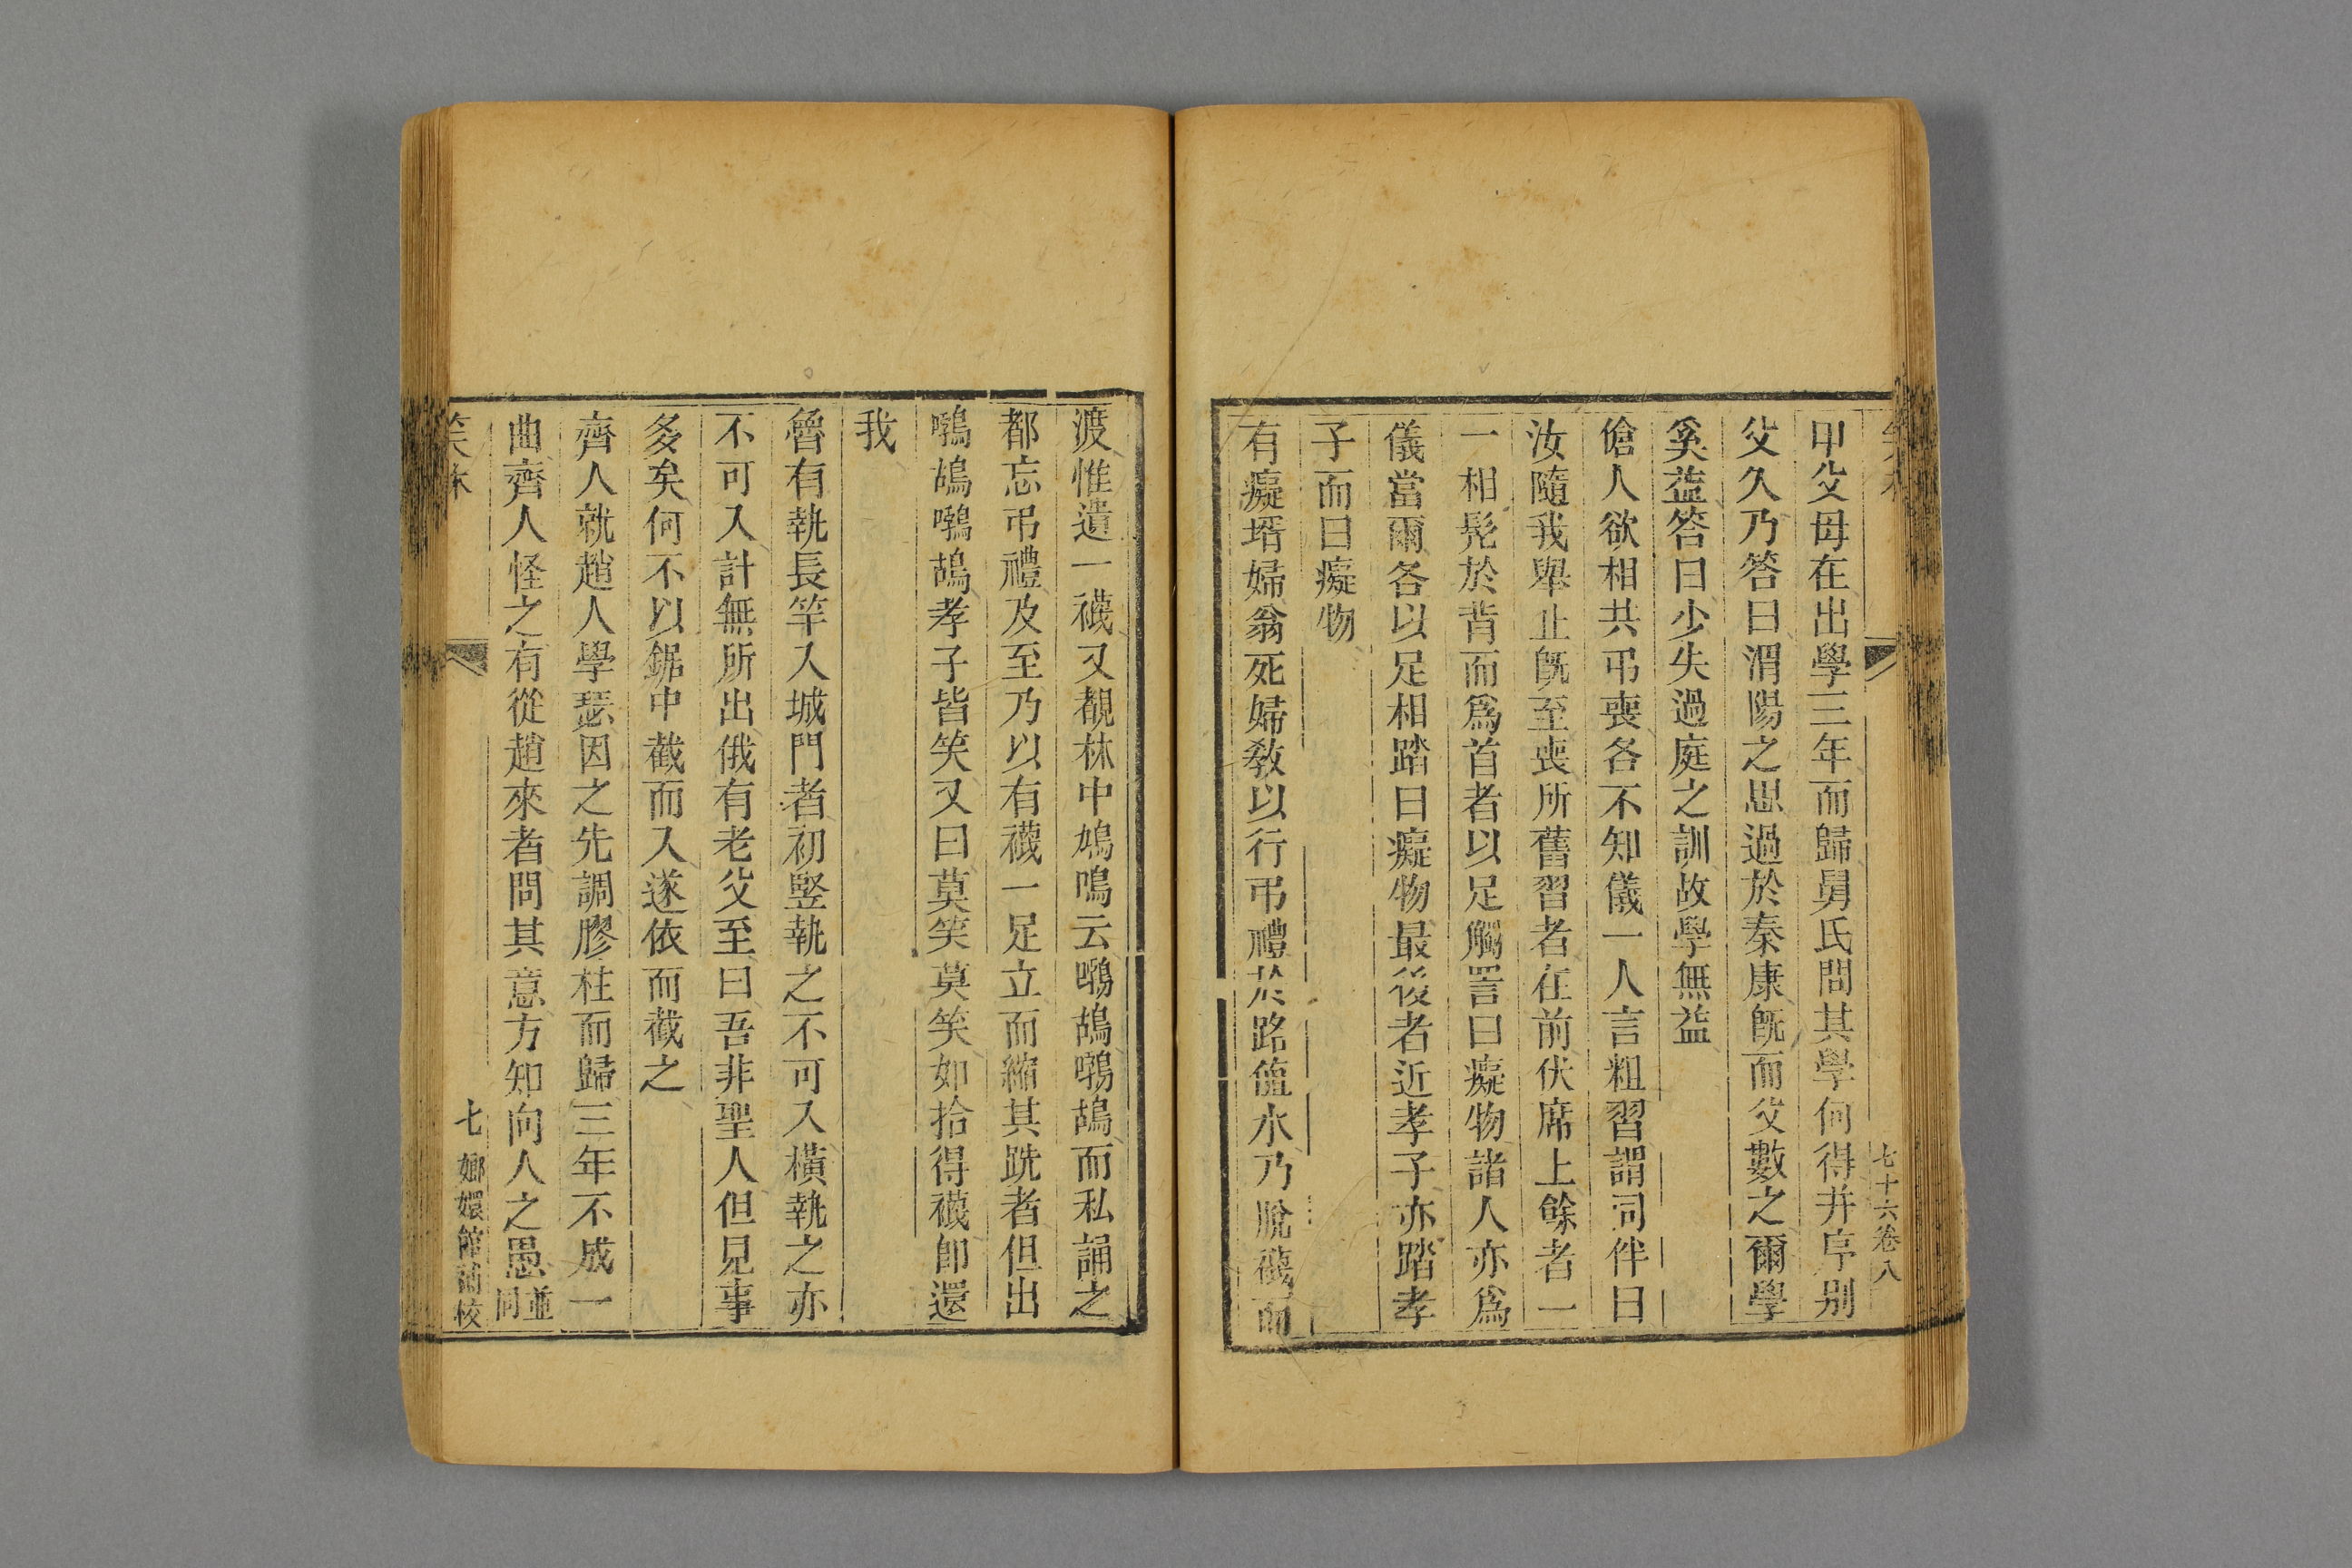 七十六卷八
甲父母在出學三年而歸舅氏問其學何得并序别
父久乃答曰渭陽之思過於秦康旣而父數之爾學
奚益答曰少失過庭之訓故學無益
傖人欲相共弔喪各不知儀一人言粗習謂同伴曰
汝隨我舉止旣至喪所舊習者在前伏席上餘者一
一相髡於背而爲首者以足觸詈曰癡物諸人亦爲
儀當爾各以足相踏曰癡物最後者近孝子亦踏孝
子而曰癡物
有癡壻婦翁死婦敎以行弔禮於路值水乃脫襪而
渡惟遺一襪又覩林中鳩鳴云鶻鴣鶻鴣而私誦之
都忘弔禮及至乃以有襪一足立而縮其跣者但出
鶻鴣鶻鴣孝子皆笑又曰莫笑莫笑如拾得襪卽還
我
魯有執長竿入城門者初豎執之不可入橫執之亦
不可入計無所出俄有老父至曰吾非聖人但見事
多矣何不以鋸中截而入遂依而截之
齊人就趙人學瑟因之先調膠柱而歸三年不成一
曲齊人怪之有從趙來者問其意方知向人之愚並同
笑林
七
嫏嬛館補校